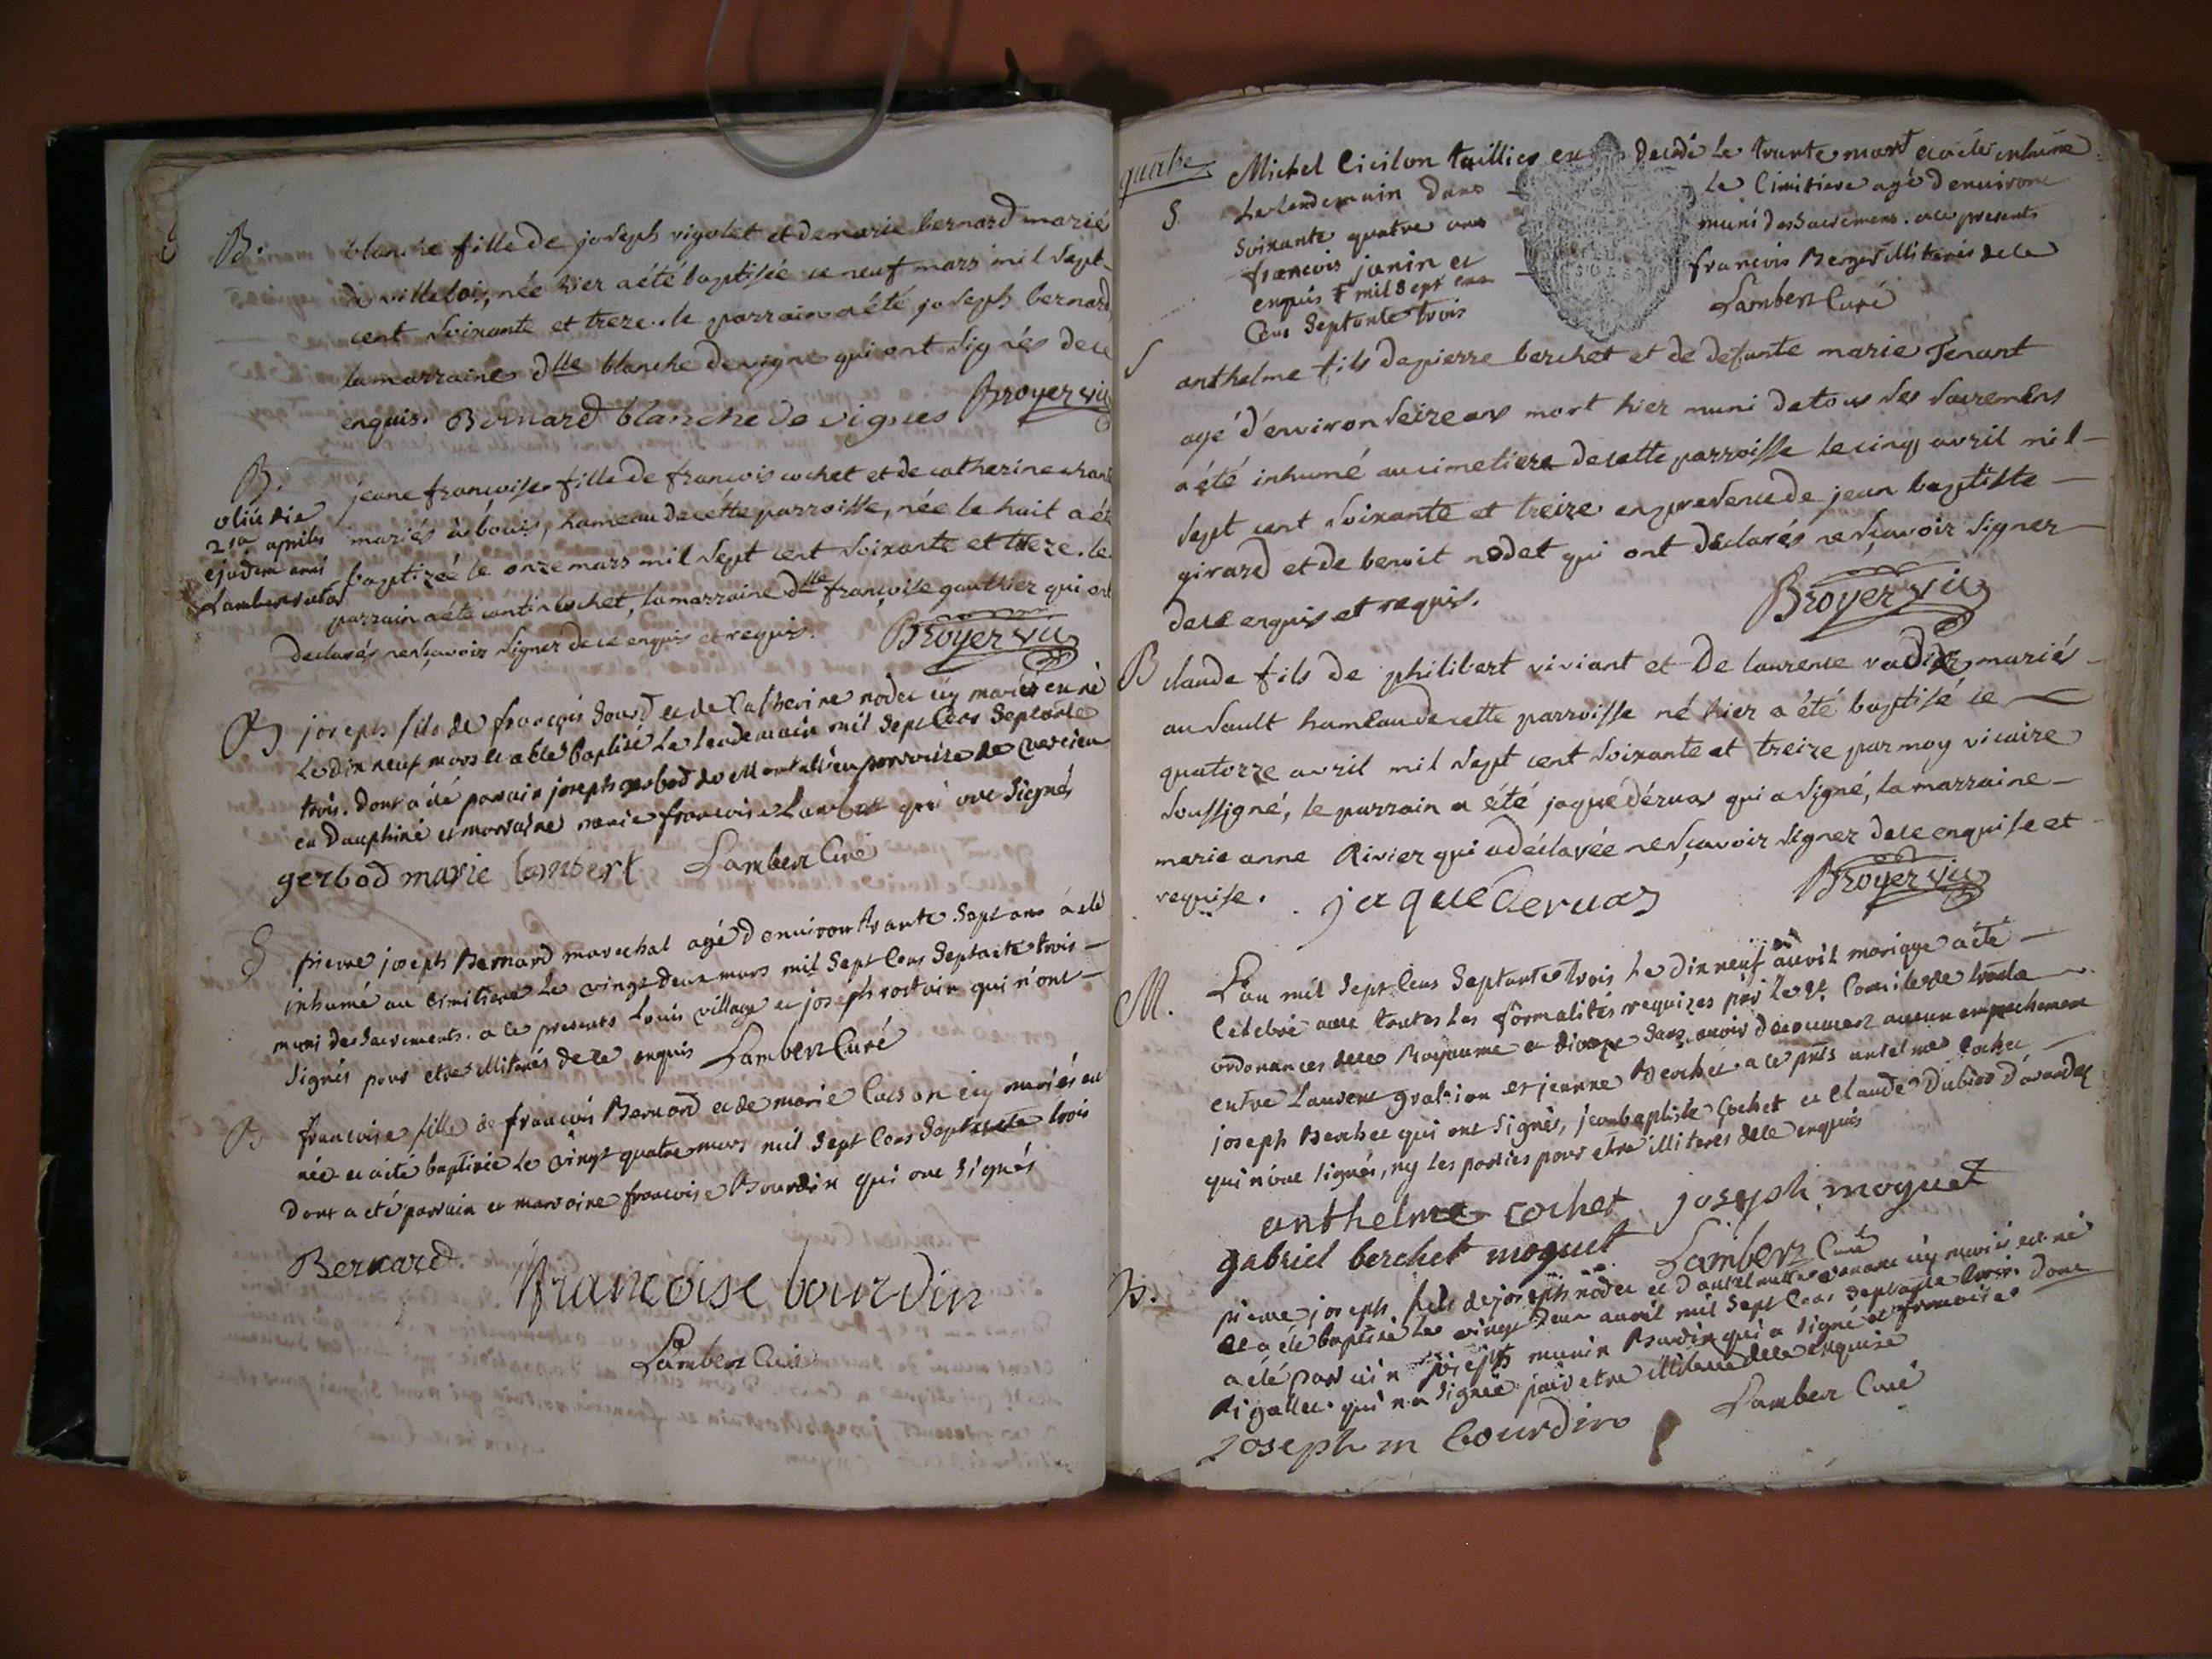 B. blanche fille de joseph rigolet et de marie bernard mariés
de villebois, née hier a été baptisée ce neuf mars mil sept
cent soixante et treze. le parrain a été joseph bernard,
la marraine dlle blanche devigne qui ont signés de ce
enquis. Bernard blanche de vignes Broyer vic
B.
obiit die
21a aprilis
ejusdem anni
Lambert
jeane françoise fille de francois cochet et de catherine
mariés à bouis, hameau de cette parroisse, née le huit a été
baptizée le onze mars mil sept cent soixante et treze. le
parrain a été cochet, la marraine dlle françoise gauthier qui ont
declarés ne sçavoir signer de ce enquis et requis. Broyer vic
B joseph fils de françois et de Catherine nodet icy mariés est né
le dix neuf mars et a été baptisé le lendemain mil sept cens septante
trois. dont a été parrain joseph gerbod de parroisse de
en Dauphiné et marraine marie francoise Lambert qui ont signés
gerbod marie lambert Lambert Curé
S pierre joseph Bernard marechal agé d'environ trante sept ans a été
inhumé au cimitiere le vingt deux mars mil sept cens septante trois
muni des sacrements. a ce presents Louis village et joseph rostain qui n'ont
signés pour etre illiterés de ce enquis Lambert Curé
B francoise fille de francois Bernard et de marie icy mariés est
née et a été baptisée le vingt quatre mars mil sept cens septante trois
dont a été parrain et marraine francoise Bourdin qui ont signés
Bernard. francoise bourdin
Lambert Curé
quatre
S Michel Cicilon decedé le trante mars et a été inhumé
le lendemain dans le cimitiere agé d'environ
soixante quatre ans muni des sacremens. a ce presents
francois janin et francois Berger illiterés de ce
enquis mil sept cens Lambert Curé
Cens septante trois
S anthelme fils de pierre berchet et de defunte marie Tenant
agé d'environ seize ans mort hier muni de tous ses sacremens
a été inhumé au cimetiere de cette parroisse le cinq avril mil
sept cent soixante et treize en presence de jean baptiste
girard et de benoit nodet qui ont declarés ne sçavoir signer
de ce enquis et requis. Broyer vic
B claude fils de philibert viviant et de laurence vadier mariés
au sault hameau de cette parroisse né hier a été baptisé ce
quatorze avril mil sept cent soixante et treize par moy vicaire
soussigné, le parrain a été jaque déruas qui a signé, la marraine
marie anne Rivier qui a déclarée ne sçavoir signer de ce enquise et
requise. jaque deruas Broyer vic
M. L'an mil sept cens septante trois le dix neuf avril mariage a été
celebré avec toutes les formalités requises par le St Concile de trente
ordonances de ce Royaume et diocese sans avoir decouvert aucun empechement
entre Laurent gration et jeanne Berchet a ce pnts antelme Cochet
joseph Berchet qui ont signés, jean baptiste Cochet et Claude Dubied
qui n'ont signés, ny les parties pour etre illiterés de ce enquis
anthelme cochet joseph moguet
gabriel berchet moguet Lambert Curé
B. pierre joseph fils de joseph nodet et d'antelmette icy mariés est né
et a été baptisé le vingt deux avril mil sept cens septante trois. dont
a été parrain joseph munin Bourdin qui a signé et francoise
Rigollet qui n'a signée pour etre illiterée de ce enquise
joseph m bourdin Lambert Curé